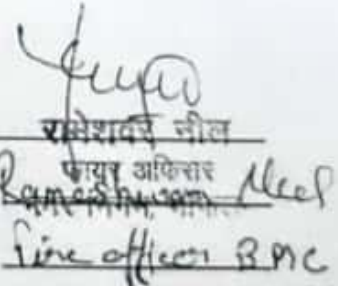 रामेश्वर नील
फायर अफिसर
Rameshwar Neel
Fire officer BMC